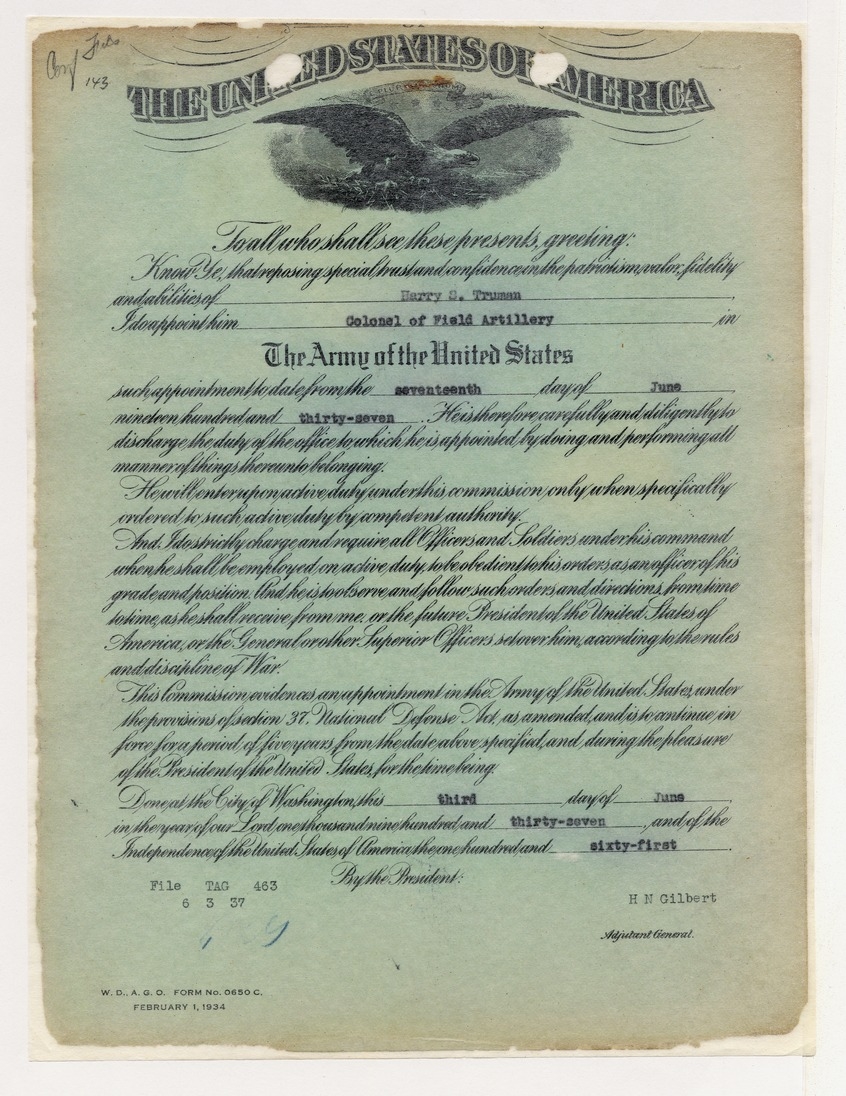 Conf Files
143
THE UNITED STATES OF AMERICA
To all who shall see these presents, greeting:
Know Ye, that reposing special trust and confidence in the patriotism, valor, fidelity
and abilities of Harry S. Truman,
I do appoint him Colonel of Field Artillery in
The Army of the United States
such appointment to date from the seventeenth day of June
nineteen hundred and thirty-seven. He is therefore carefully and diligently to
discharge the duty of the office to which he is appointed by doing and performing all
manner of things thereunto belonging.
He will enter upon active duty under this commission only when specifically
ordered to such active duty by competent authority.
And I do strictly charge and require all Officers and Soldiers under his command
when he shall be employed on active duty to be obedient to his orders as an officer of his
grade and position. And he is to observe and follow such orders and directions, from time
to time, as he shall receive from me, or the future President of the United States of
America, or the General or other Superior Officers set over him, according to the rules
and discipline of War.
This Commission evidences an appointment in the Army of the United States, under
the provisions of section 37, National Defense Act, as amended, and is to continue in
force for a period of five years from the date above specified, and during the pleasure
of the President of the United States, for the time being.
Done at the City of Washington, this third day of June
in the year of our Lord one thousand nine hundred and thirty-seven, and of the
Independence of the United States of America the one hundred and sixty-first.
By the President:
File TAG 463
6 3 37
H N Gilbert
Adjutant General.
W. D., A. G. O. FORM No. 0650 C.
FEBRUARY 1, 1934